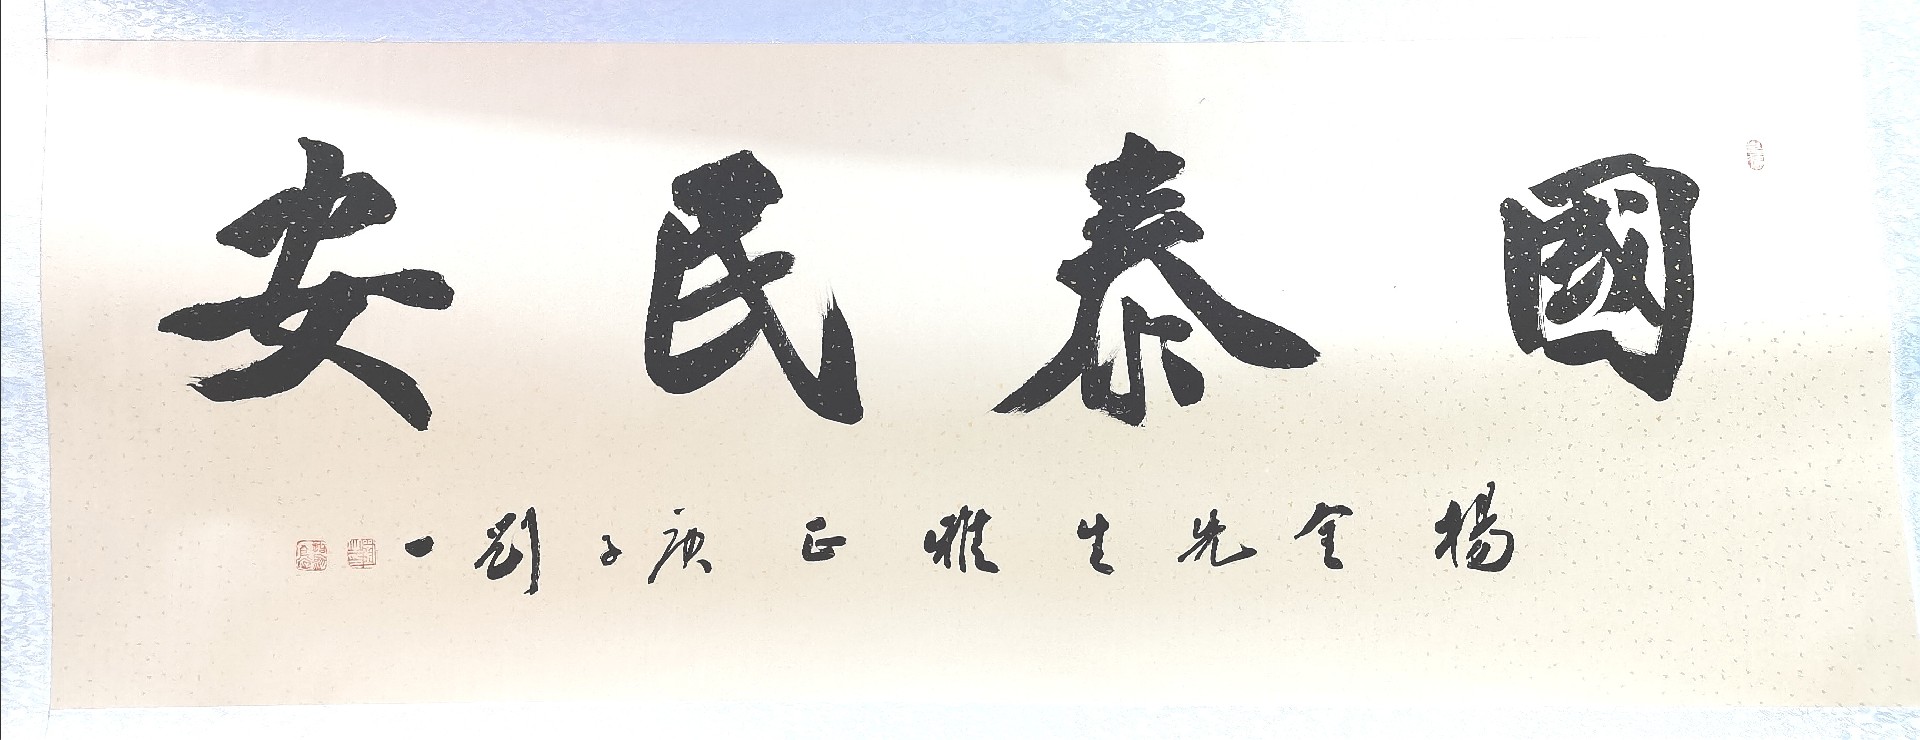 國泰民安
楊金先生雅正庚子劉一